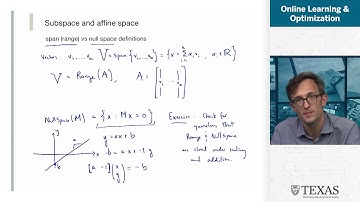 Subspace and affine space
span (range) vs null space definitions
Vectors v₁,...,vₙ V = span {v₁,...,vₙ} = {v = Σ αᵢ vᵢ , αᵢ ∈ ℝ}
V = Range(A), A =
Nullspace(M) = {x : Mx = 0}
Exercise: Check for yourselves that
Range & Nullspace
are closed under scaling
and addition.
y = ax + b
-b = ax + -1·y
[a -1] (x y) = -b
x
Online Learning &
Optimization
TEXAS
The University of Texas at Austin